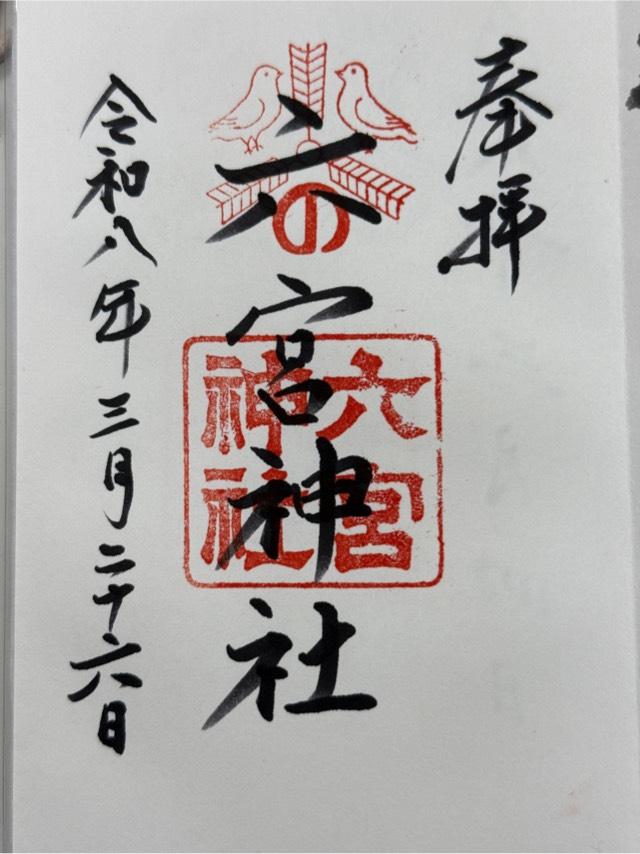 奉拝
六の宮神社
六宮
神社
令和八年三月二十六日